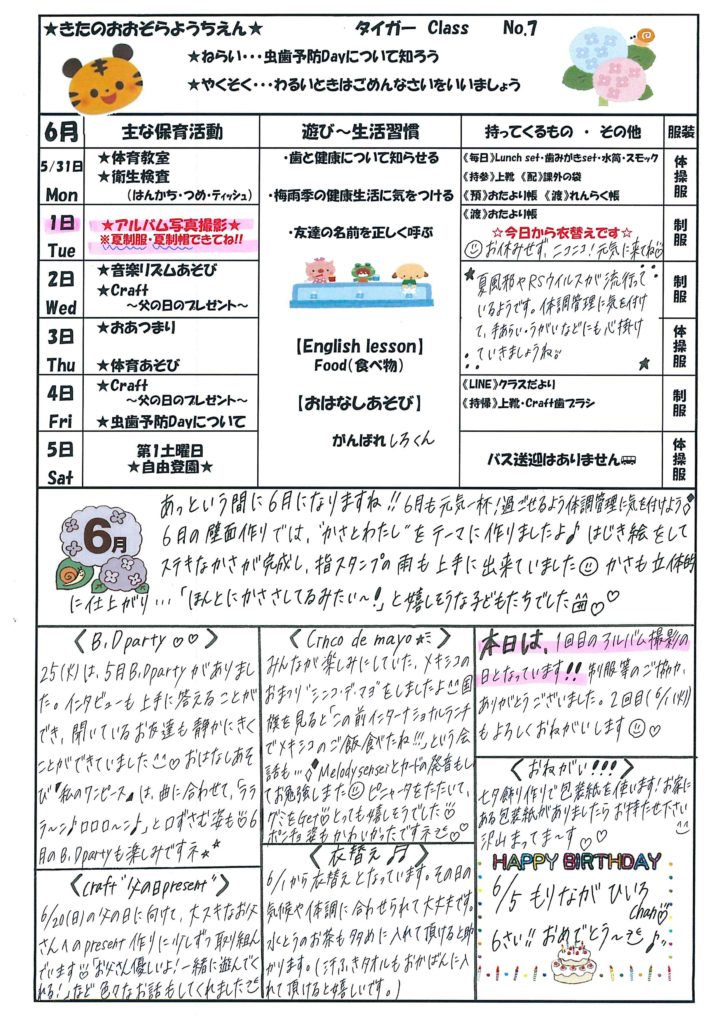 ★きたのおおぞらようちえん★　タイガー Class　No.7
★ねらい・・・虫歯予防Dayについて知ろう
★やくそく・・・わるいときはごめんなさいをいいましょう
6月　主な保育活動　遊び～生活習慣　持ってくるもの ・ その他　服装
5/31日
Mon
★体育教室
★衛生検査
（はんかち・つめ・ティッシュ）
《毎日》Lunch set・歯みがきset・水筒・スモック
《持参》上靴 《配》課外の袋
《預》おたより帳 《渡》れんらく帳
体操服
1日
Tue
★アルバム写真撮影★
※夏制服・夏制帽できてね!!
《渡》おたより帳
☆今日から衣替えです☆
お休みせず、ニコニコ！元気に来てね
制服
2日
Wed
★音楽リズムあそび
★Craft
～父の日のプレゼント～
制服
3日
Thu
★おあつまり
★体育あそび
体操服
夏風邪やRSウイルスが流行って
いるようです。体調管理に気を付け
て、手あらい・うがいなどにも心掛け
ていきましょうね。
4日
Fri
★Craft
～父の日のプレゼント～
★虫歯予防Dayについて
《LINE》クラスだより
《持帰》上靴・Craft歯ブラシ
制服
5日
Sat
第1土曜日
★自由登園★
バス送迎はありません
体操服
・歯と健康について知らせる
・梅雨季の健康生活に気をつける
・友達の名前を正しく呼ぶ
【English lesson】
Food（食べ物）
【おはなしあそび】
がんばれしろくん
6月
あっという間に6月になりますね!! 6月も元気一杯！過ごせるよう体調管理に気を付けよう
6月の壁面作りでは、"かさとわたし"をテーマに作りましたよ♪ はじき絵をして
ステキなかさが完成し、指スタンプの雨も上手に出来ていました かさも立体的
に仕上がり…「ほんとにかささしてるみたい～！」と嬉しそうな子どもたちでした
〈B.D party ♡♡〉
25(火)は、5月B.Dpartyがありまし
た。インタビューも上手に答えることが
でき、聞いているお友達も静かにきく
ことができていました おはなしあそ
び『私のワンピース』は、曲に合わせて、「ララ
ラ～ン♪ロロロ～ン♪」と口ずさむ姿も 6
月のB.Dpartyも楽しみですネ
〈Craft "父の日present"〉
6/20(日)の父の日に向けて、大スキなお父
さんへのpresent作りに少しずつ取り組ん
でいます「お父さん優しいよ！一緒に遊んでく
れる！」など色々なお話もしてくれました
〈Cinco de mayo〉
みんなが楽しみにしていた、メキシコの
おまつり"シンコ・デ・マヨ"をしましたよ 国
旗を見ると「この前インターナショナルランチ
でメキシコのご飯食べたね!!!」という会
話も… Melody senseiとカードの発音もし
てお勉強しました ピニャータをたたいて、
グミをGet とっても嬉しそうでした
ポンチョ姿もかわいかったですネ
〈衣替え♫〉
6/1から衣替えとなっています。その日の
気候や体調に合わせられて大丈夫です。
水とうのお茶も多めに入れて頂けると助
かります。(汗ふきタオルもおかばんに入
れて頂けると嬉しいです。)
本日は、1回目のアルバム撮影の
日となっています!! 制服等のご協力、
ありがとうございました。2回目(6/1(火))
もよろしくおねがいします
〈おねがい!!!〉
七夕飾り作りで包装紙を使います！お家に
ある包装紙がありましたらお持たせ下さい
沢山まってま～す♡♡
HAPPY BIRTHDAY
6/5 もりなが ひいろ
chan
6さい!! おめでとう～